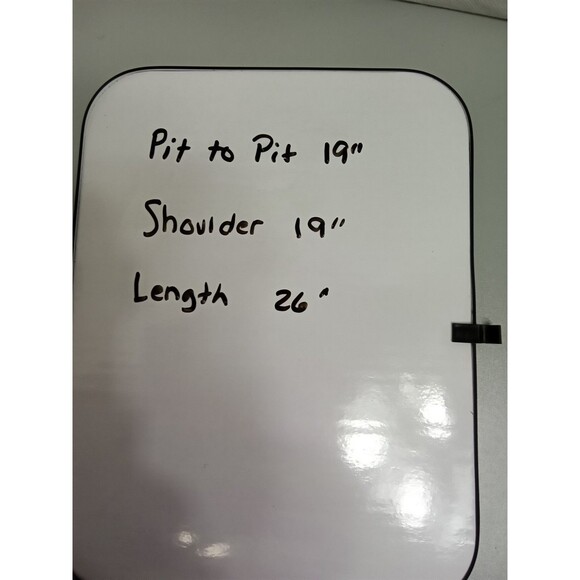 Pit to Pit 19"
Shoulder 19"
Length 26"